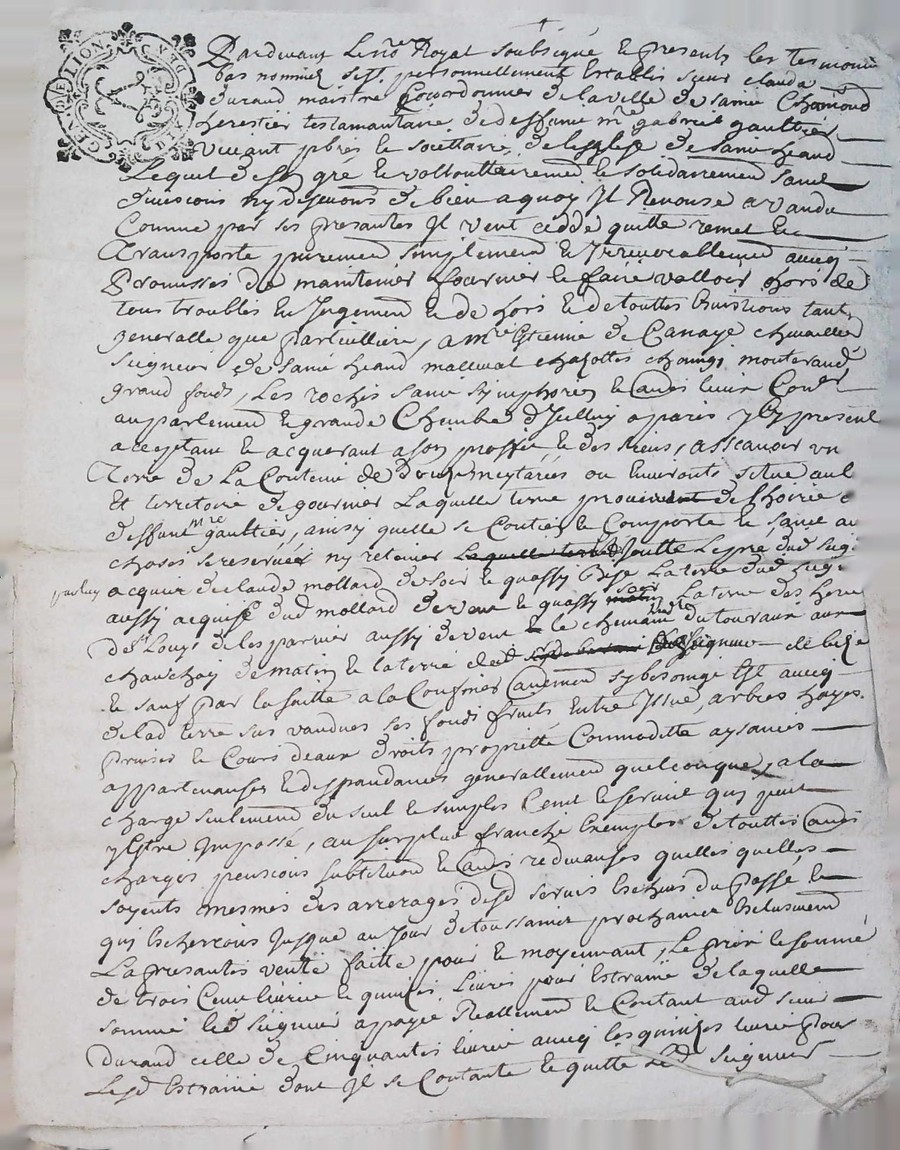 GN. DE LION DIX DEN
Pardevant le no.re Royal soubsigné & presents les tesmoins
bas nommez s'est personnellement establis sieur claude
durand maistre Courdonnier de la ville de sainct Chamond
herestier testamantaire de deffunct m.re gabriel gaultier
vivant pbre & societtaire de lesglise de sainct heand
Lequel de son gré & vollonttairement & solidairement sans
divisions ny de
de bien a quoy Il Renonse a vandu
Comme par ses presantes Il vent cedde quitte remet &
Transporte purement simplement & Irrevocablement avecq
Promesses de maintenir fournir & faire valloir hors de
tous troubles en Jugement & de hors & de touttes evictions tant
generalle que particulliere, a m.re Estienne de Canaye chevallier
seigneur de sainct heand malleval chazottes
grand fonds, Les roches sainct simphorien & autres lieux Con.er
au parlement & grande Chambre d'
a paris y present
acceptant & acquerant a son proffit & des siens, asscavoir un
Terre de La Contenue de
meytérées ou environ situé au l
Et territoire de
Laquelle terre provient de lhoirie d
deffunct m.re gaultier, ainsy quelle se Contient & Comporte & sans au
choses se reserver ny retenir
Joutte Le pré dud seig
par luy acquis de claude mollard de soir & quassy bize La terre dud seig
aussy acquise dud mollard de vent & quassy soir La terre des hoirs
de s.r Louys de
aussy de vent & le chemin
du
aux
de matin & la terre dud
seigneur de bize
& sauf par la suitte a la Confiner autrement sy besoing Est avecq
de lad terre sus vandue ses fonds fruits Entrée Issue, arbres hayes
prises & Cours deaux droits propriette Commoditte aysances
appartenances & despandances generallement quelconques, a la
charge seulement du seul & simples Cens & servis quy peut
y Estre Imposé, au surplus franche Exempte de touttes autres
charges pensions substitution & autres redevanses quelles quelles
soyents mesmes des arrerages desd servis Escheus du passé &
quy Escherrons Jusque au Jour de toussainct prochaine Exclusivement
La presantes vente faitte pour & moyennant, Le prix & somme
de trois Cents livres & quinzes Livres pour Estraine de laquelle
somme led Seigneur a payée Reallement & Contant aud sieur
Durand celle de Cinquantes livres avecq les quinzes livres pour
Lesd Estraine dont Il se Contante & quitte Led Seigneur